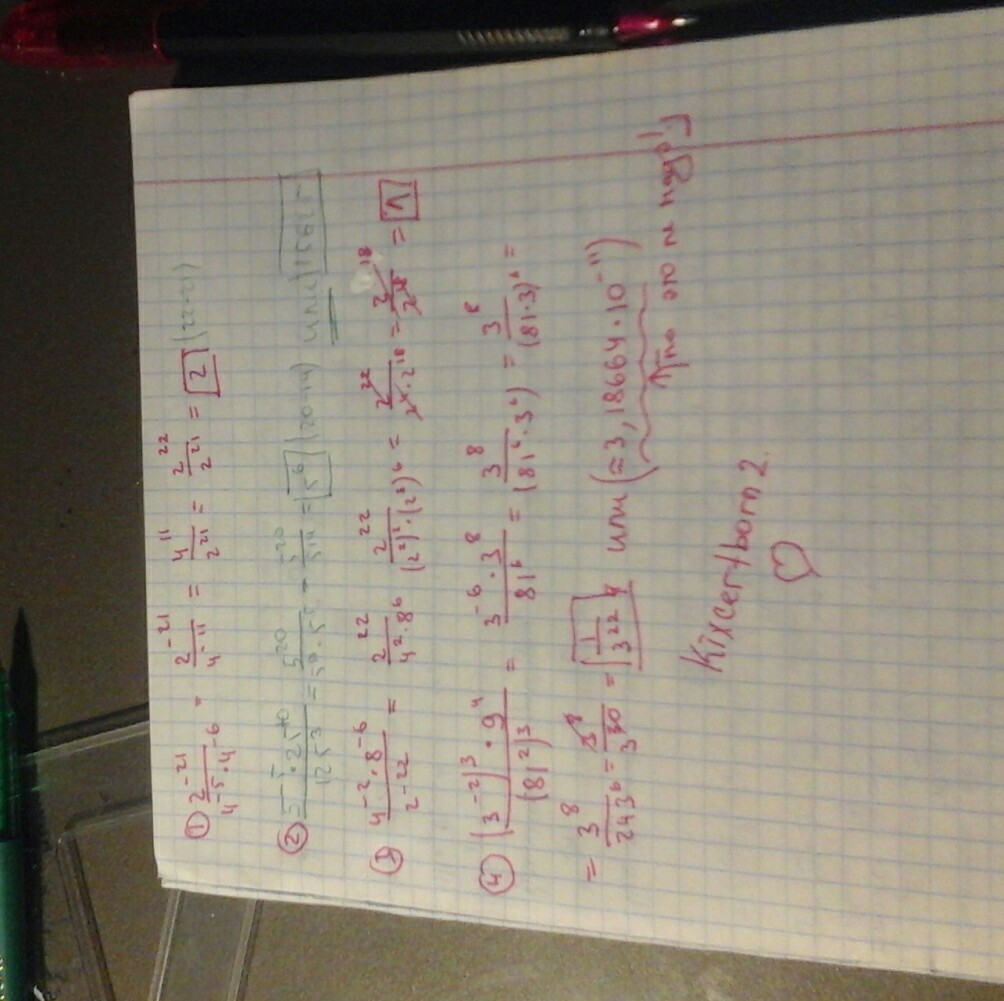 ① 2^-21 / (4^-5 · 4^-6) = 2^-21 / 4^-11 = 4^11 / 2^21 = 2^22 / 2^21 = 2 (22-21)
② = 5^6 (20-14) или
③ (4^-2 · 8^-6) / 2^-22 = 2^22 / (4^2 · 8^6) = 2^22 / ((2^2)^2 · (2^3)^6) = 2^22 / (2^4 · 2^18) = 2^18 / 2^18 = 1
④ ((3^-2)^3 · 9^4) / (81^2)^3 = (3^-6 · 3^8) / 81^6 = 3^8 / (81^6 · 3^6) = 3^8 / (81 · 3)^6 =
= 3^8 / 243^6 = 3^8 / 3^30 = 1 / 3^22 или (≈ 3,18664 · 10^-11)
↑ но это не надо!
Kixcer+born2
♡